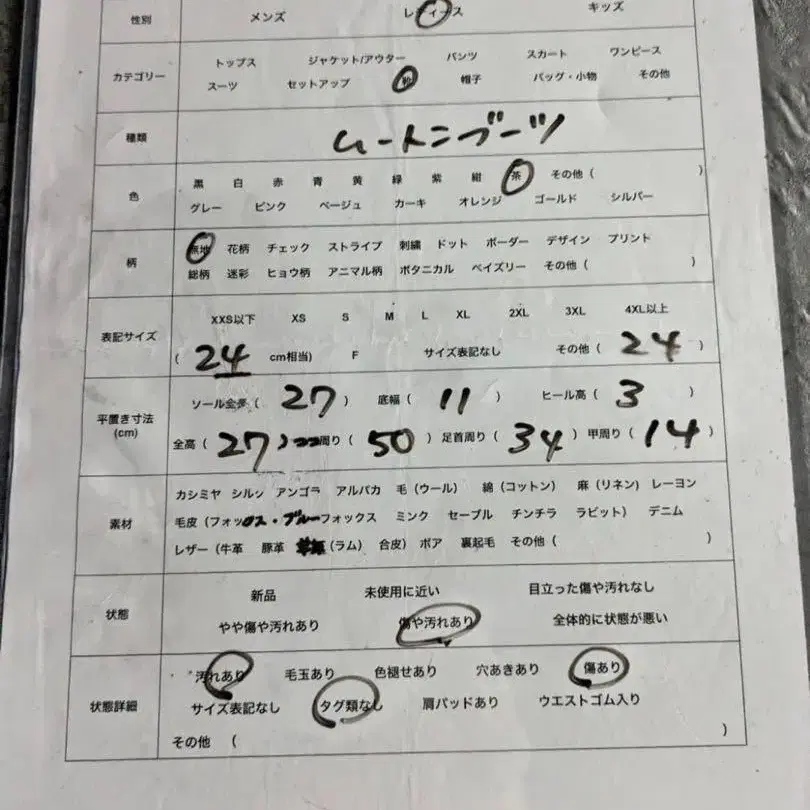 性別 メンズ レディース キッズ
カテゴリー トップス ジャケット/アウター パンツ スカート ワンピース
スーツ セットアップ 靴 帽子 バッグ・小物 その他
種類 ムートンブーツ
色 黒 白 赤 青 黄 緑 紫 紺 茶 その他 ( )
グレー ピンク ベージュ カーキ オレンジ ゴールド シルバー
柄 無地 花柄 チェック ストライプ 刺繍 ドット ボーダー デザイン プリント
総柄 迷彩 ヒョウ柄 アニマル柄 ボタニカル ペイズリー その他 ( )
表記サイズ XXS以下 XS S M L XL 2XL 3XL 4XL以上
( 24 cm相当) F サイズ表記なし その他 ( 24 )
平置き寸法 (cm) ソール全長 ( 27 ) 底幅 ( 11 ) ヒール高 ( 3 )
全高 ( 27 ) 周り ( 50 ) 足首周り ( 34 ) 甲周り ( 14 )
素材 カシミヤ シルク アンゴラ アルパカ 毛 (ウール) 綿 (コットン) 麻 (リネン) レーヨン
毛皮 (フォックス・ブルーフォックス ミンク セーブル チンチラ ラビット) デニム
レザー (牛革 豚革 (ラム) 合皮) ボア 裏起毛 その他 ( )
状態 新品 未使用に近い 目立った傷や汚れなし
やや傷や汚れあり 傷や汚れあり 全体的に状態が悪い
状態詳細 汚れあり 毛玉あり 色褪せあり 穴あきあり 傷あり
サイズ表記なし タグ類なし 肩パッドあり ウエストゴム入り
その他 ( )